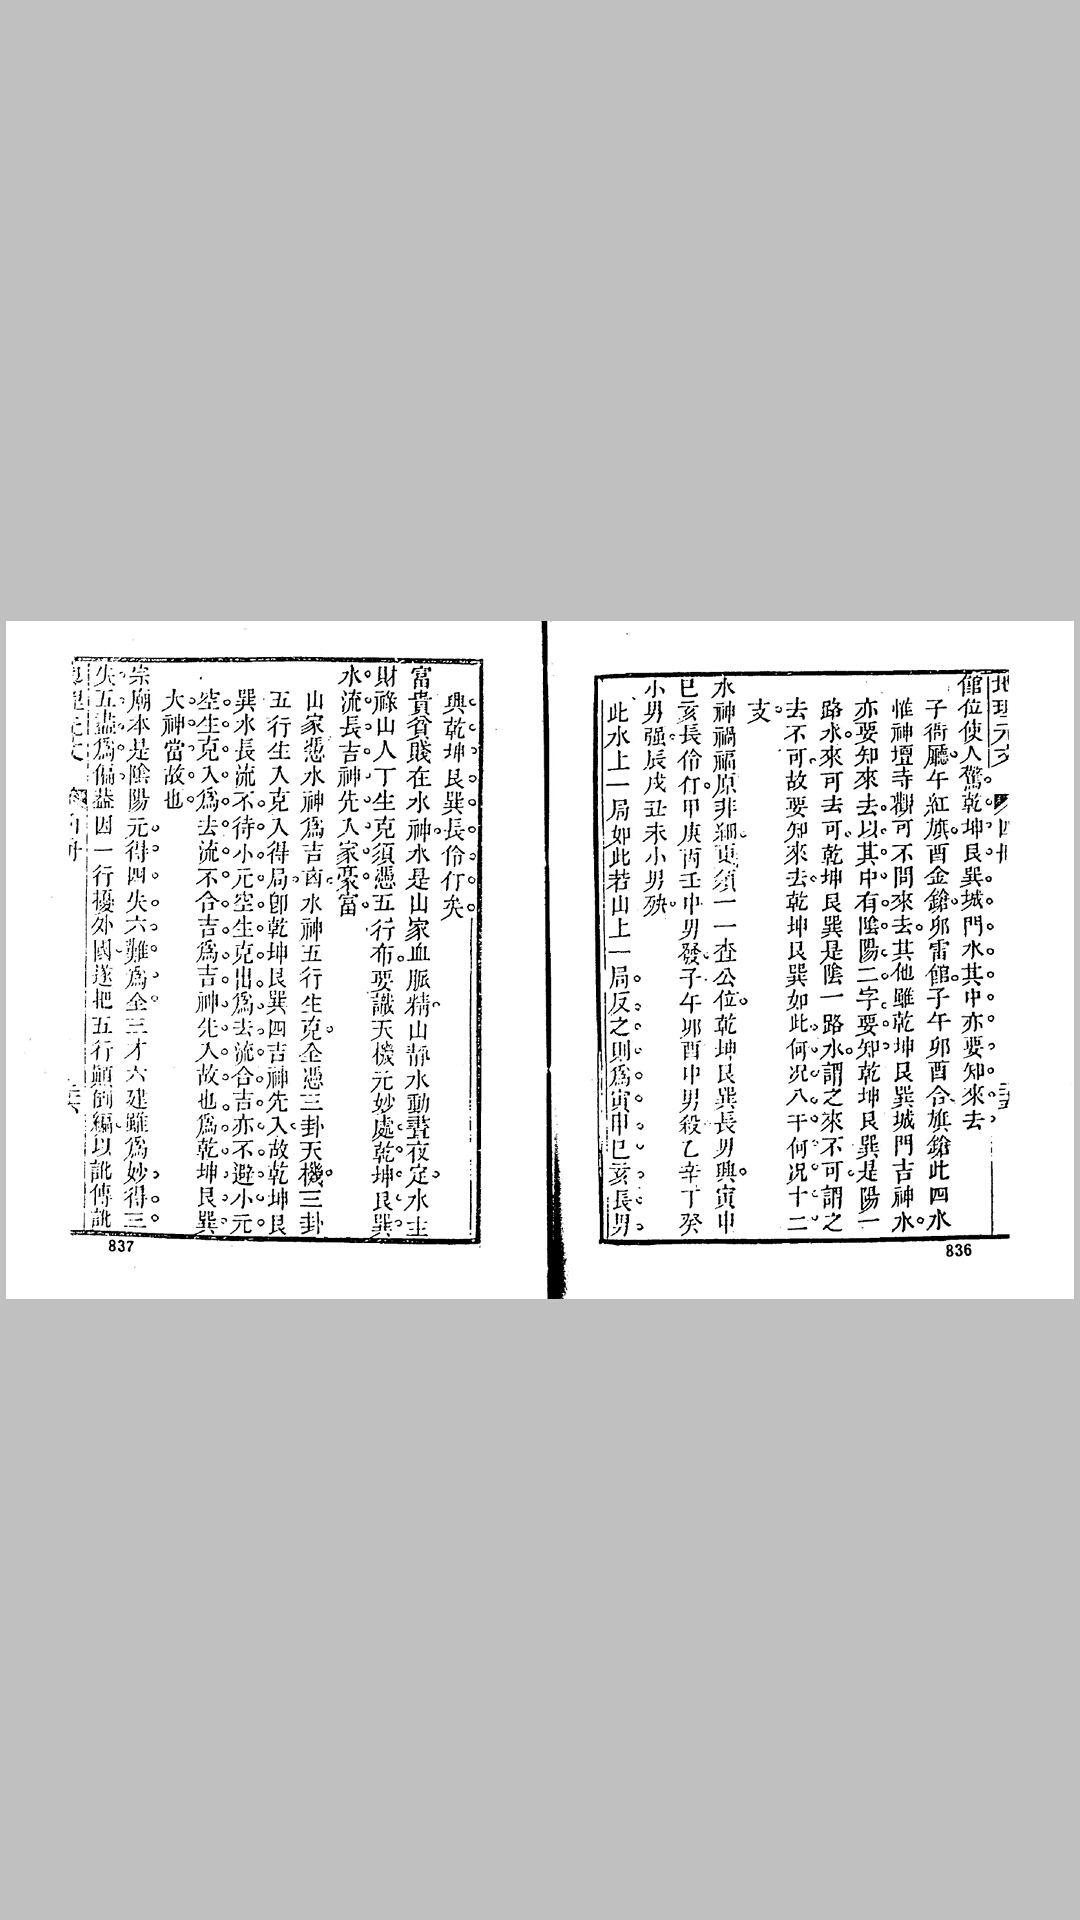 地理元文 四冊
館位使人驚乾坤艮巽城門水其中亦要知來去
子衙廳午紅旗酉金鎗卯雷館子午卯酉合旗鎗此四水
惟神壇寺觀可不問來去其他雖乾坤艮巽城門吉神水
亦要知來去以其中有陰陽二字要知乾坤艮巽是陽一
路水來可去可乾坤艮巽是陰一路水謂之來不可謂之
去不可故要知來去乾坤艮巽如此何况八干何况十二
支
水神禍福原非細更須一一查公位乾坤艮巽長男興寅申
巳亥長伶仃甲庚丙壬中男發子午卯酉中男殺乙辛丁癸
小男强辰戌丑未小男殃
此水上一局如此若山上一局反之則爲寅申巳亥長男
836
興乾坤艮巽長伶仃矣
富貴貧賤在水神水是山家血脈精山靜水動晝夜定水主
財祿山人丁生克須憑五行布要識天機元妙處乾坤艮巽
水流長吉神先入家豪富
山家憑水神爲吉凶水神五行生克全憑三卦天機三卦
五行生入克入得局卽乾坤艮巽四吉神先入故乾坤艮
巽水長流不待小元空生克出爲去流合吉亦不避小元
空生克入爲去流不合吉爲吉神先入故也爲乾坤艮巽
大神當故也
宗廟本是陰陽元得四失六難爲全三才六建雖爲妙得三
失五盡爲偏蓋因一行擾外國遂把五行顛倒編以訛傳訛
837